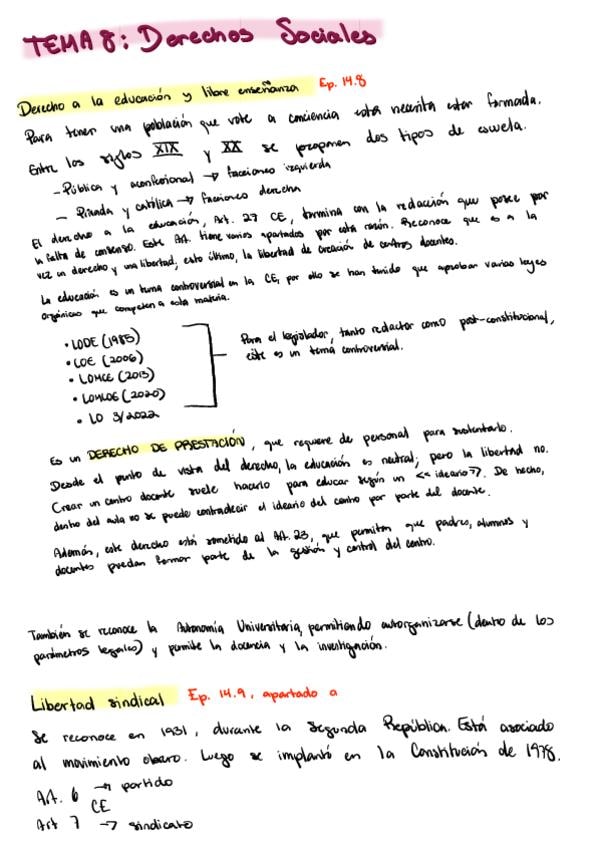 TEMA 8: Derechos Sociales
Derecho a la educación y libre enseñanza Ep. 14.8
Para tener una población que vote a conciencia esta necesita estar formada.
Entre los siglos XIX y XX se proponen dos tipos de escuela.
- Pública y aconfesional → facciones izquierda
- Privada y católica → facciones derecha
El derecho a la educación, Art. 27 CE, termina con la redacción que posee por
la falta de consenso. Este Art. tiene varios apartados por esta razón. Reconoce que es a la
vez un derecho y una libertad, esto último, la libertad de creación de centros docentes.
La educación es un tema controversial en la CE, por ello se han tenido que aprobar varias leyes
orgánicas que competen a esta materia.
• LODE (1985)
• LOE (2006)
• LOMCE (2013)
• LOMLOE (2020)
• LO 3/2022
Para el legislador, tanto redactor como post-constitucional,
este es un tema controversial.
Es un DERECHO DE PRESTACIÓN, que requiere de personal para sustentarlo.
Desde el punto de vista del derecho, la educación es neutral; pero la libertad no.
Crear un centro docente suele hacerlo para educar según un <<ideario>>. De hecho,
dentro del aula no se puede contradecir el ideario del centro por parte del docente.
Además, este derecho está sometido al Art. 23, que permiten que padres, alumnos y
docentes puedan formar parte de la gestión y control del centro.
También se reconoce la Autonomía Universitaria, permitiendo autorganizarse (dentro de los
parámetros legales) y permite la docencia y la investigación.
Libertad sindical Ep. 14.9, apartado a
Se reconoce en 1931, durante la Segunda República. Está asociado
al movimiento obrero. Luego se implantó en la Constitución de 1978.
Art. 6 → partido
CE
Art 7 → sindicato